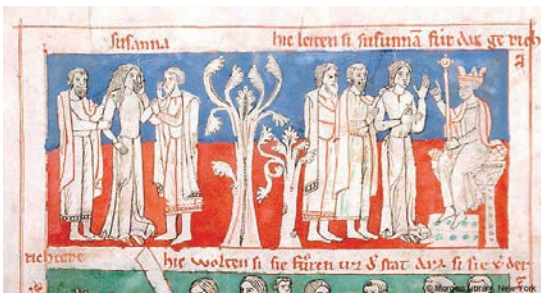 susanna
hie leiten si susunnā für daz ge rich
richtere
hie wolten si sie fůren vz d͛ stat daz si sie v͛ der
© Morgan Library, New York